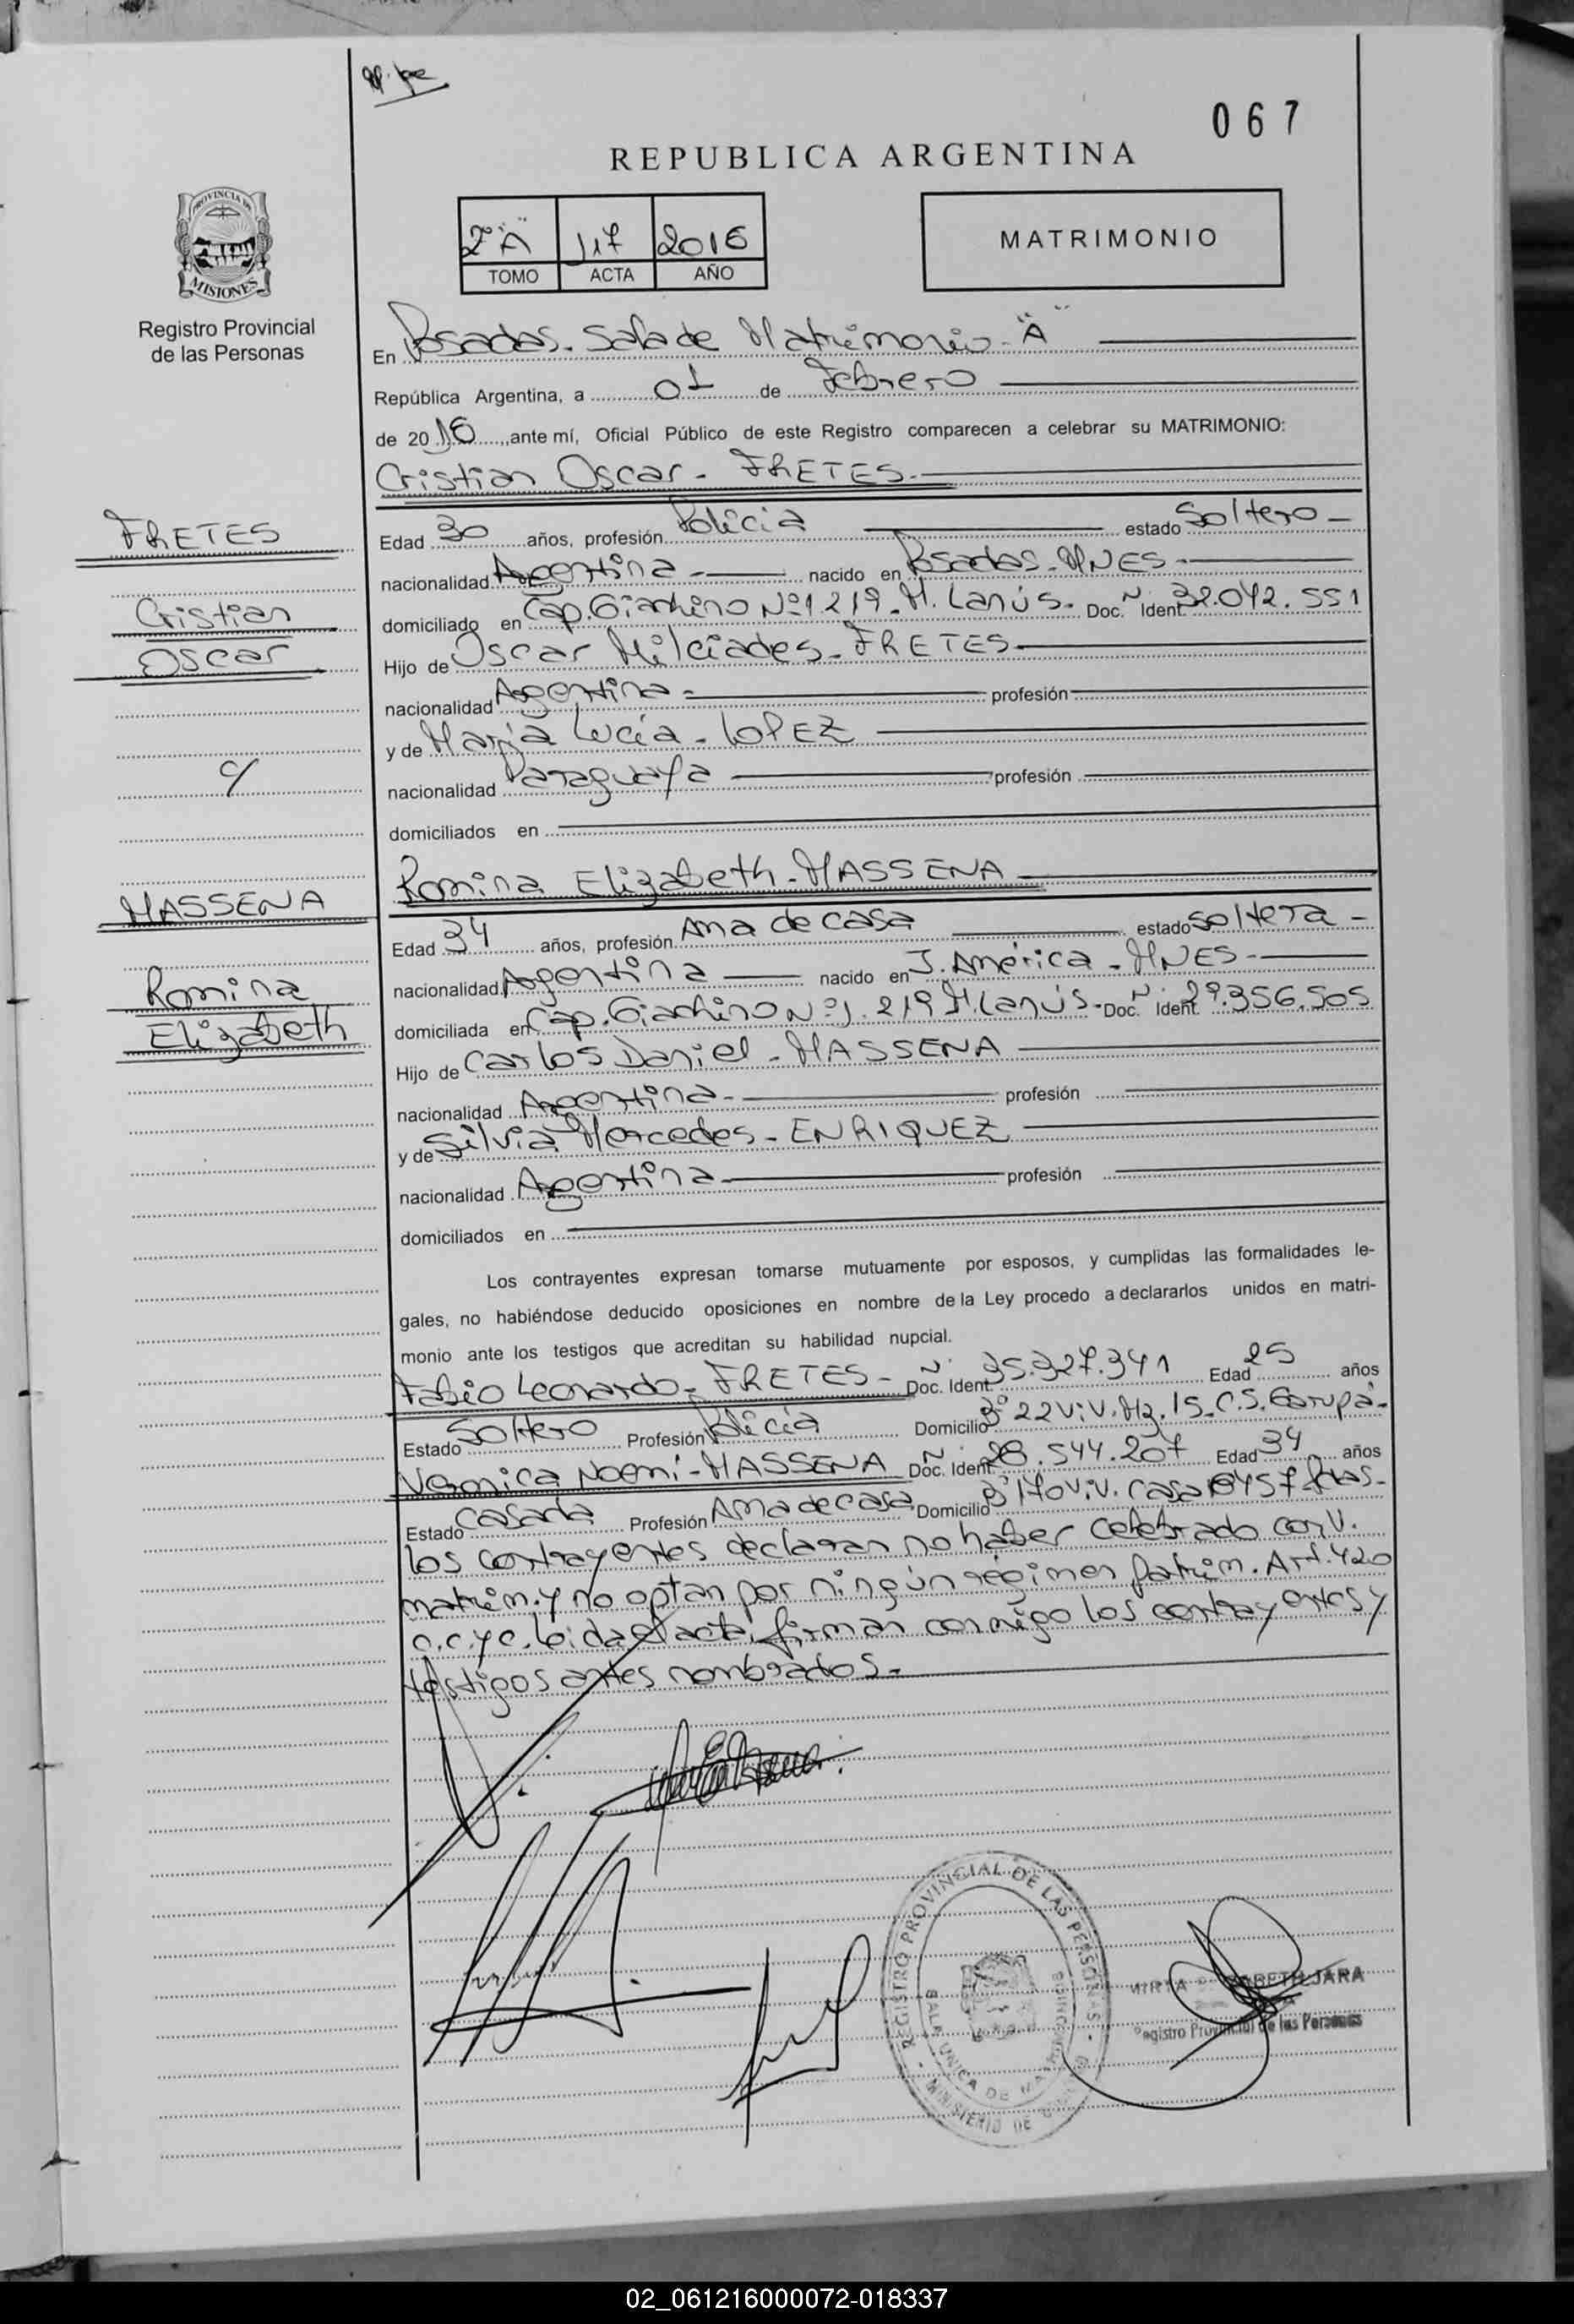 067
REPUBLICA ARGENTINA
PROVINCIA DE
MISIONES
Registro Provincial
de las Personas
2º "A" 117 2016
TOMO ACTA AÑO
MATRIMONIO
En Posadas. Sala de Matrimonio - "A"
República Argentina, a 01 de Febrero
de 2016, ante mí, Oficial Público de este Registro comparecen a celebrar su MATRIMONIO:
Cristian Oscar - FRETES.
FRETES
Cristian
Oscar
Edad 30 años, profesión Policía estado Soltero -
nacionalidad Argentina - nacido en Posadas - MNES -
domiciliado en Cap. Giachino Nº 1219 - M. Lanús - Doc. Nº Ident. 32.042.551
Hijo de Oscar Milciades - FRETES -
nacionalidad Argentina - profesión
y de María Lucía - LOPEZ
nacionalidad Paraguaya profesión
domiciliados en
c/
MASSENA
Romina
Elizabeth
Romina Elizabeth - MASSENA
Edad 34 años, profesión Ama de casa estado soltera -
nacionalidad Argentina nacido en J. América - MNES -
domiciliada en Cap. Giachino Nº 1.219 M. Lanús - Doc. Nº Ident. 29.356.505
Hijo de Carlos Daniel - MASSENA
nacionalidad Argentina - profesión
y de Silvia Mercedes - ENRIQUEZ
nacionalidad Argentina - profesión
domiciliados en
Los contrayentes expresan tomarse mutuamente por esposos, y cumplidas las formalidades le-
gales, no habiéndose deducido oposiciones en nombre de la Ley procedo a declararlos unidos en matri-
monio ante los testigos que acreditan su habilidad nupcial.
Fabio Leonardo - FRETES - Doc. Nº Ident. 35.327.341 Edad 25 años
Estado Soltero Profesión Policía Domicilio Bº 22 Viv. Mz. 15 - C.S. Garupá -
Veronica Noemí - MASSENA Doc. Nº Ident. 28.544.207 Edad 34 años
Estado Casada Profesión Ama de casa Domicilio Bº 170 Viv. Casa 10457 Pdas -
los contrayentes declaran no haber celebrado conv.
matrim. y no optan por ningún régimen patrim. Art. 420
c.c.yc. Leída el acta, firman conmigo los contrayentes y
testigos antes nombrados. -
REGISTRO PROVINCIAL DE LAS PERSONAS -
MINISTERIO DE
JARA
Registro Provincial de las Personas
02_061216000072-018337